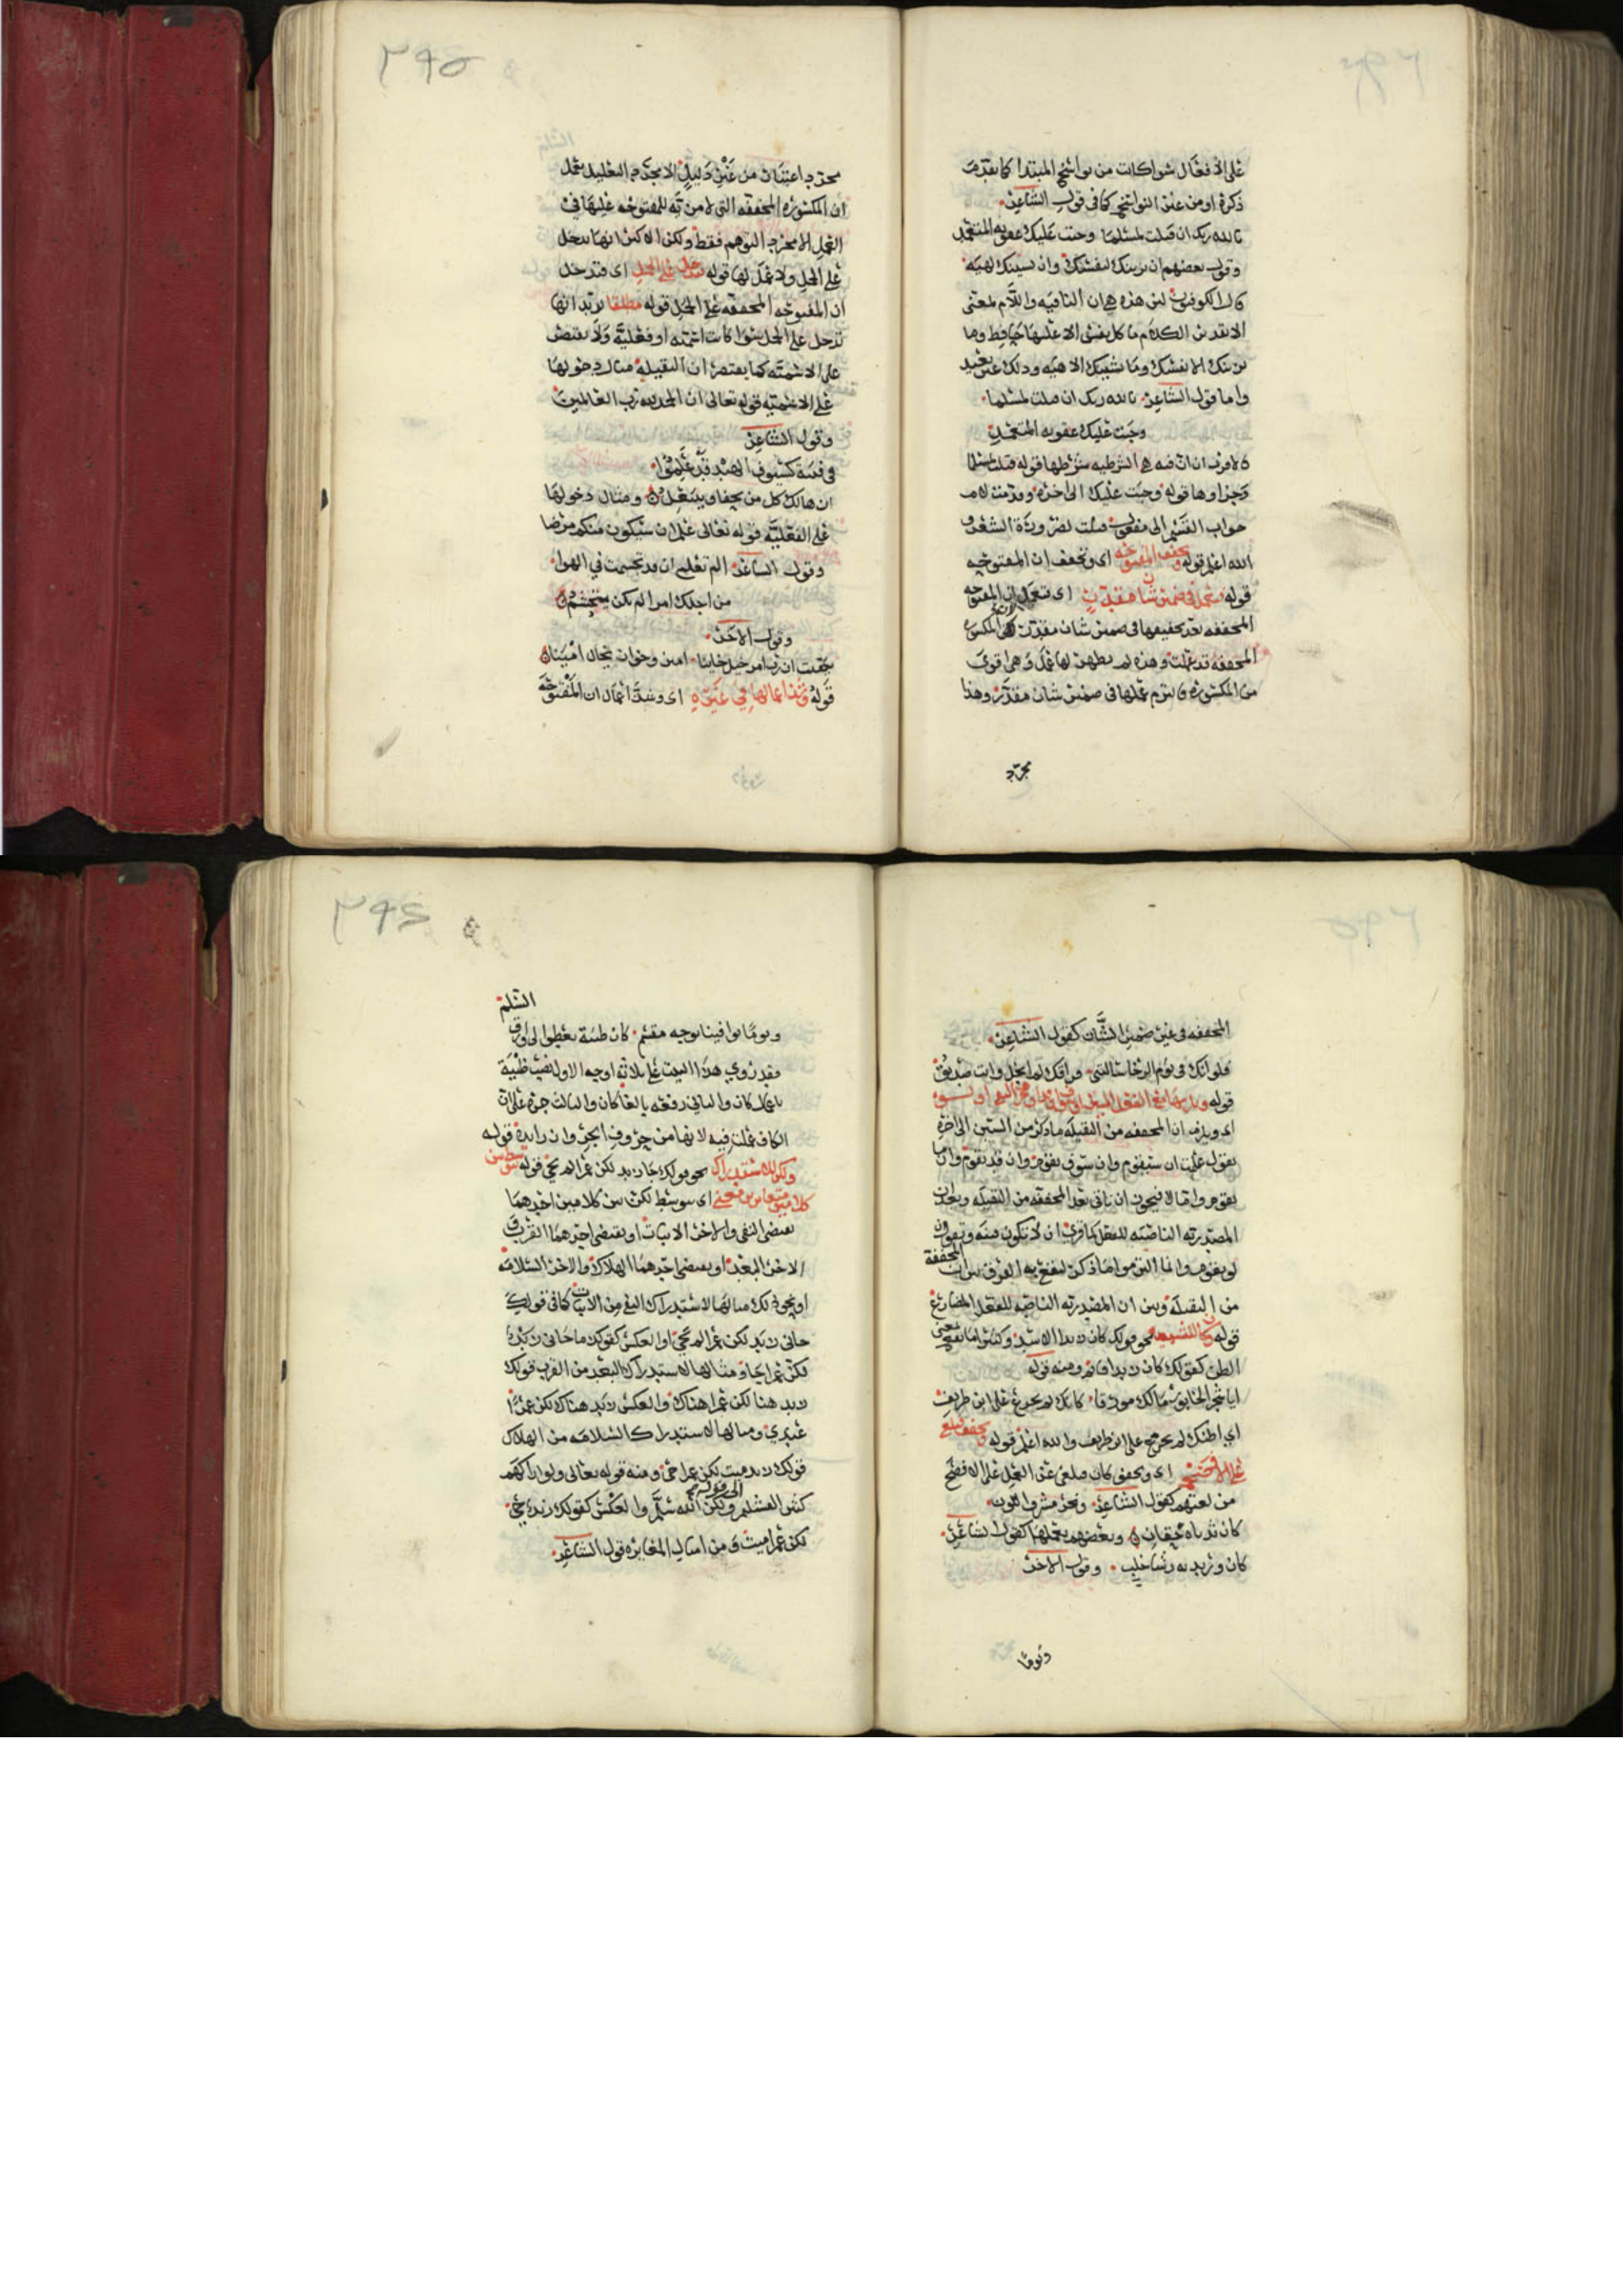 على الأفعال سوا كانت من نواسخ المبتدا كما تقدمت
ذكره او من غير النواسخ كما في قول الشاعر
تالله ربك ان قتلت لمسلما وجبت عليك عقوبة المتعمد
وقول بعضهم ان يزينك لنفسك وان يشينك لهيه
قال الكوفيون ان هذه هي ان النافيه واللام بمعنى
الا تقدير الكلام ما كل نفس الا عليها حافظ وما
يزينك الا نفسك وما يشينك الا هيه وذلك عنر بعيد
واما قول الشاعر تالله ربك ان قتلت لمسلما
وجبت عليك عقوبه المتعمد
فلا قرب ان ان فيه هي الشرطيه شرطها قوله قتلت لمسلما
وجزاوها قوله وجبت عليك الى اخره وقدمت لام
جواب القسم الى مفعول قتلت لضرورة الشعر و
الله اعلم قوله وتخفف المفتوحه اي وتخفف ان المفتوحه
قوله فتعمل في ضمير شان مقدر اي فتعمل ان المفتوحه
المخففه بعد تخفيفها في ضمير شان مقدر لان المكسوره
المخففه قد عملت وهذه لم يظهر لها عمل وهي اقوى
من المكسوره فالتزم عملها في ضمير شان مقدر وهذا
مجرد
٢٩٥
مجرد اعتبار من غير دليل الا مجرد التعليل بعمل
ان المكسوره المخففه التي لا مزيه للمفتوحه عليها في
العمل الا مجرد التوهم فقط ولكن الاكثر انها تدخل
على الجمل ولا عمل لها قوله فتدخل على الجمل اي فتدخل
ان المفتوحه المخففه على الجمل قوله مطلقا يريد انها
تدخل على الجمل سوا كانت اسميه او فعليه ولا يقتصر
على الاسميه كما يقتصر ان الثقيله مثال دخولها
على الاسميه قوله تعالى ان الحمد لله رب العالمين
وقول الشاعر
في فتية كسيوف الهند قد علموا
ان هالك كل من يحفى وينتعل ومثال دخولها
على الفعليه قوله تعالى علم ان سيكون منكم مرضى
وقول الشاعر الم تعلمي ان قد تجشمت في الهوا
من اجلك امرا لم يكن يتجشم
وقول الاخر
تيقنت ان رب امر خيل خاينا امين وخوان يخال امينا
قوله وشذ اعمالها في غيره اي وشذ اعمال ان المفتوحه
المخففه في غير ضمير الشان كقول الشاعر
فلو انك في يوم الرخا سالتني فراقك لم ابخل وانت صديق
قوله ويلزمها مع الفعل السين او سوف او قد او حرف النفي
اي ويلزم ان المخففه من الثقيله ما ذكر من السين الى اخره
تقول علمت ان سيقوم وان سوف يقوم وان قد يقوم وان ما
يقوم واما لا فيجوز ان تاتي بعد المخففه من الثقيله وبعد ان
المصدريه الناصبه للفعل كما قري ان لا تكون فتنه وتقول ان
لو يقوم وانما التزموا ما ذكر ليقع به الفرق بين ان المخففة
من الثقيله وبين ان المصدريه الناصبه للفعل المضارع
قوله وكان للتشبيه نحو قولك كان زيدا الاسد وكثيرا ما تفيد معنى
الظن كقولك كان زيدا قايم ومنه قوله
ايا شجر الخابور مالك مورقا كانك لم تجزع على ابن طريف
اي اظنك لم تجزع على ابن طريف والله اعلم قوله وتخفف فتلغى
على الافصح اي وتخفف كان فتلغى عن العمل على الافصح
من لغتهم كقول الشاعر ونحر مشرق اللون
كان ثدياه حقان وبعضهم يعملها كقول الشاعر
كان وريديه رشا خلب وقول الاخر
ويوما
٢٩٤
ويوما توافينا بوجه مقسم كان ظبية تعطوا الى وارق السلم
فقد روي هذا البيت على ثلاثة اوجه الاول نصب ظبية
باعمال كان والثاني رفعه بالغا كان والثالث جره على ان
الكاف عملت فيه لانها من حروف الجر وان زايدة قوله
ولكن للاستدراك نحو قولك جا زيد لكن عمرا لم يجي قوله تتوسط بين
كلامين متغايرين معنى اي يتوسط لكن بين كلامين احدهما
يقتضي النفي والاخر الاثبات او يقتضي احدهما القرب و
الاخر البعد او يقتضي احدهما الهلاك والاخر السلامه
او نحو ذلك مثالها لاستدراك النفي من الاثبات كما في قولك
جاني زيد لكن عمرا لم يجي او العكس كقولك ما جاني زيد
لكن عمرا جا ومثالها لاستدراك البعد من القرب قولك
زيد هنا لكن عمرا هناك والعكس زيد هناك لكن عمرا
عندي ومثالها لاستدراك السلامه من الهلاك
قولك زيد ميت لكن عمرا حي ومنه قوله تعالى ولو اراكهم
كثيرا لفشلتم الى قوله ولكن الله سلم والعكس كقولك زيد حي
لكن عمرا ميت ومن امثال المغايره قول الشاعر